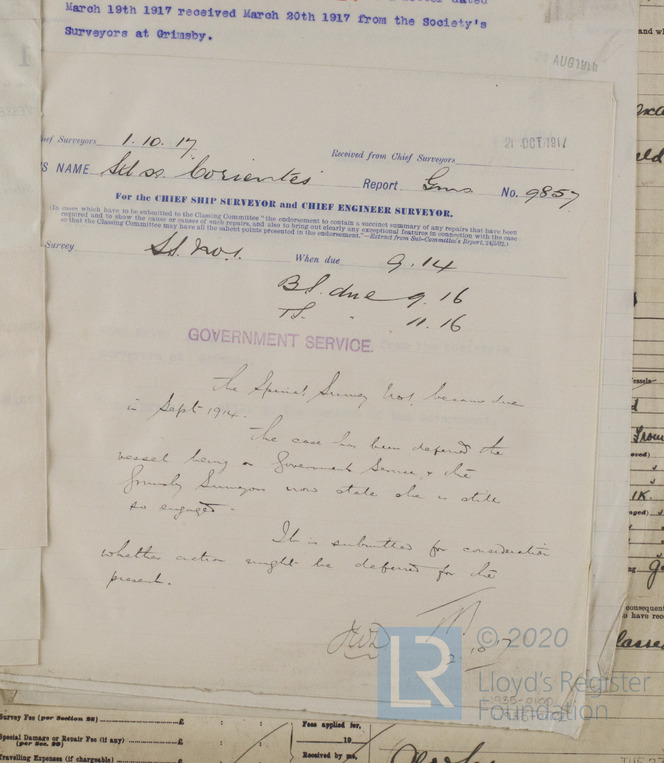 March 19th 1917 received March 20th 1917 from the Society's
Surveyors at Grimsby.
AUG 1914
ief Surveyors 1.10.17
Received from Chief Surveyors
OCT 1917
S NAME "Corientes" Report Gms No. 9857
For the CHIEF SHIP SURVEYOR and CHIEF ENGINEER SURVEYOR.
(In cases which have to be submitted to the Classing Committee "the endorsement to contain a succinct summary of any repairs that have been
required and to show the cause or causes of such repairs, and also to bring out clearly any exceptional features in connection with the case
so that the Classing Committee may have all the salient points presented in the endorsement."—Extract from Sub-Committee's Report, 24/5/02.)
Survey No1. When due 9.14
BS. due 9.16
TS. " 11.16
GOVERNMENT SERVICE.
The Special Survey No1. became due
in Sept 1914.
The case has been deferred the
vessel being on Government Service, & the
Grimsby Surveyors now state she is still
so engaged.
It is submitted for consideration
whether action might be deferred for the
present.
2.10.17
LR © 2020
Lloyd's Register
Foundation
Survey Fee (per Section 28) £ : :
Special Damage or Repair Fee (if any) £ : :
(per Sec. 28)
Travelling Expenses (if chargeable) £ : :
Fees applied for,
19
Received by me,